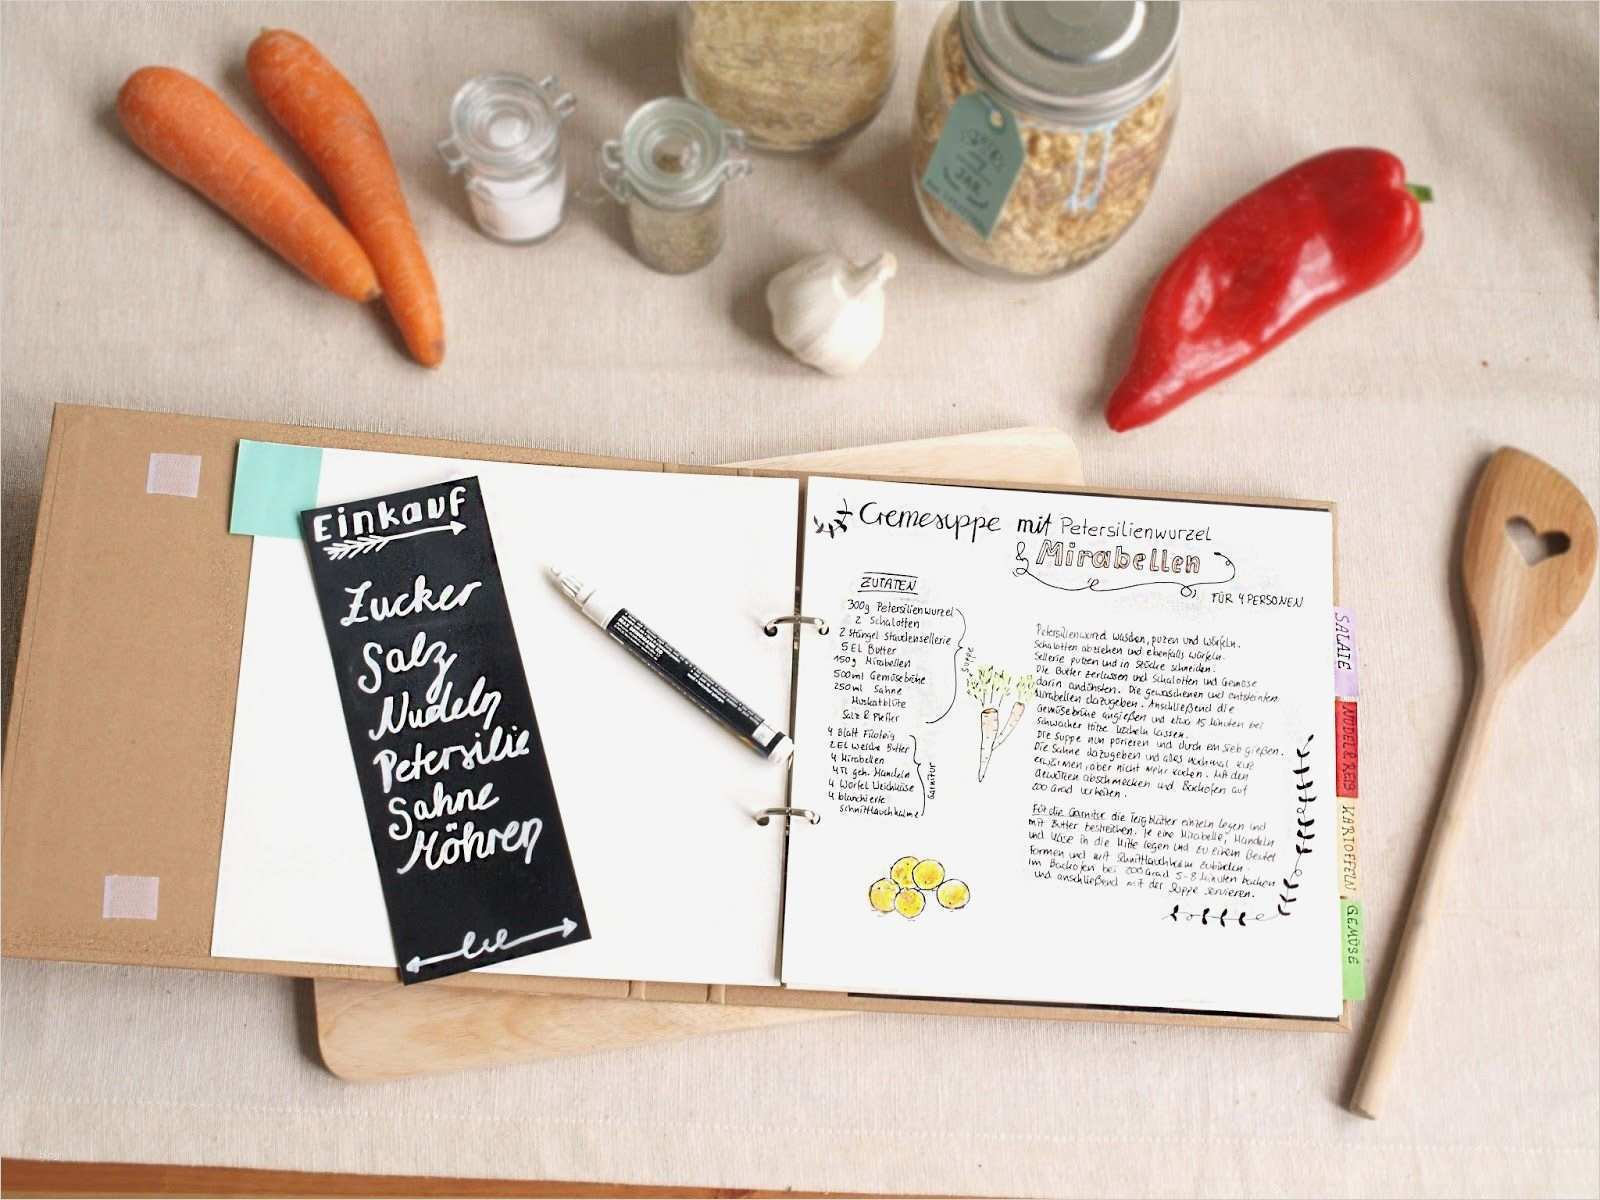 Einkauf
Zucker
Salz
Nudeln
Petersilie
Sahne
Möhren
Cremesuppe mit Petersilienwurzel
& Mirabellen
FÜR 4 PERSONEN
ZUTATEN
300g Petersilienwurzel
2 Schalotten
2 Stängel Staudensellerie
5 EL Butter
150g Mirabellen
500ml Gemüsebrühe
250ml Sahne
Muskatblüte
Salz & Pfeffer
Suppe
4 Blatt Filoteig
2 EL weiche Butter
4 Mirabellen
4 TL geh. Mandeln
4 Würfel Weichkäse
4 blanchierte
Schnittlauchhalme
Garnitur
Petersilienwurzel waschen, puzen und würfeln.
Schalotten abziehen und ebenfalls würfeln.
Sellerie putzen und in Stücke schneiden.
Die Butter zerlassen und Schalotten und Gemüse
darin andünsten. Die gewaschenen und entsteinten
Mirabellen dazugeben. Anschließend die
Gemüsebrühe angießen und etwa 15 Minuten bei
schwacher Hitze köcheln lassen.
Die Suppe nun pürieren und durch ein Sieb gießen.
Die Sahne dazugeben und alles nochmal kurz
erwärmen, aber nicht mehr kochen. Mit den
Gewürzen abschmecken und Backofen auf
200 Grad vorheizen.
Für die Garnitur die Teigblätter einzeln legen und
mit Butter bestreichen. Je eine Mirabelle, Mandeln
und Käse in die Mitte legen und zu einem Beutel
formen und mit Schnittlauchhalm zubinden.
Im Backofen bei 200 Grad 5-8 Minuten backen
und anschließend mit der Suppe servieren.
SALATE
NUDEL & REIS
KARTOFFELN
GEMÜSE
JAR